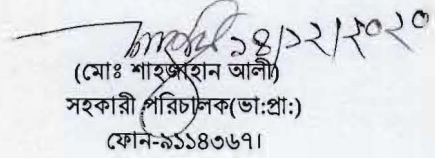 ১৪/১২/২০২০
(মোঃ শাহজাহান আলী)
সহকারী পরিচালক(ভা:প্রা:)
ফোন-৯১১৪৩৬৭।